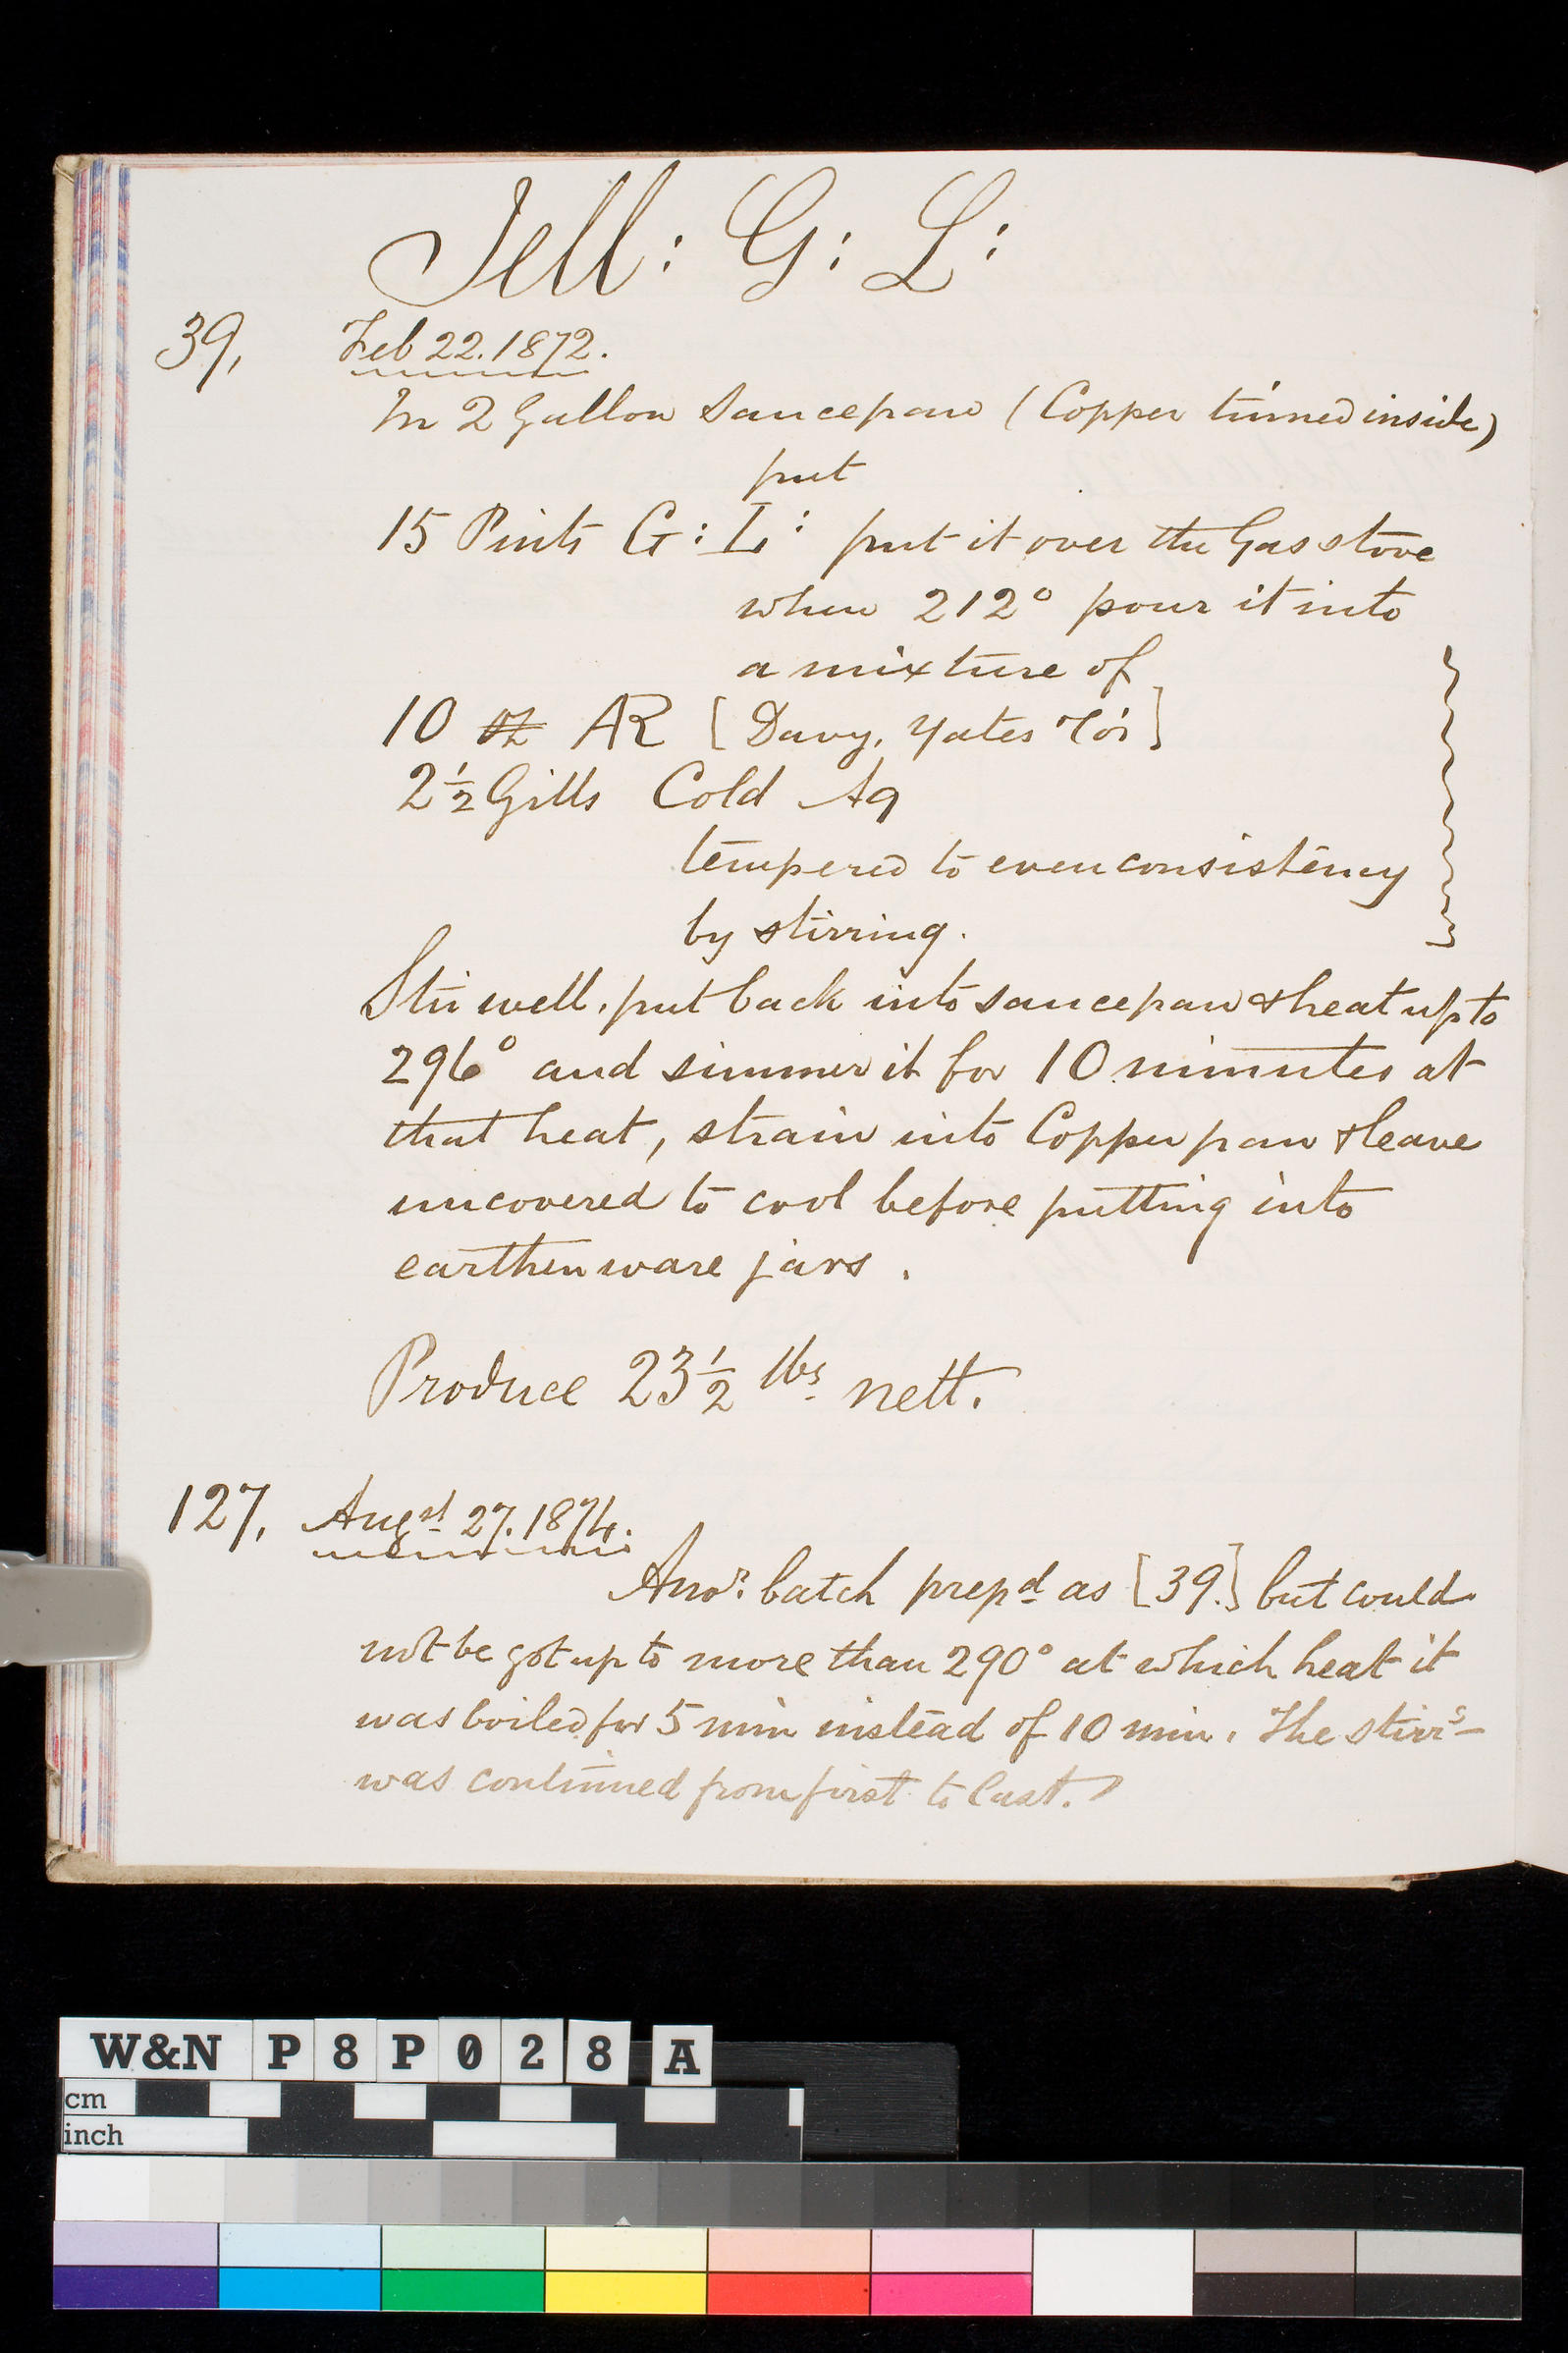 Jell: G: L:
39, Feb 22. 1872.
In 2 Gallon Saucepan (Copper tinned inside)
put
15 Pints G: L: put it over the Gas stove
when 212° pour it into
a mixture of
10 oz AR [Davy, Yates &
2½ Gills Cold Aq
tempered to even consistency
by stirring.
Stir well, put back into saucepan & heat up to
296° and simmer it for 10 minutes at
that heat, strain into Copper pan & leave
uncovered to cool before putting into
earthenware jars.
Produce 23½ lbs nett.
127, Augst 27. 1874.
Anor: batch prepd as [39.] but could
not be got up to more than 290° at which heat it
was boiled for 5 min instead of 10 min. The stirrg
was continued from first to last.
W&N P8P028 A
cm
inch